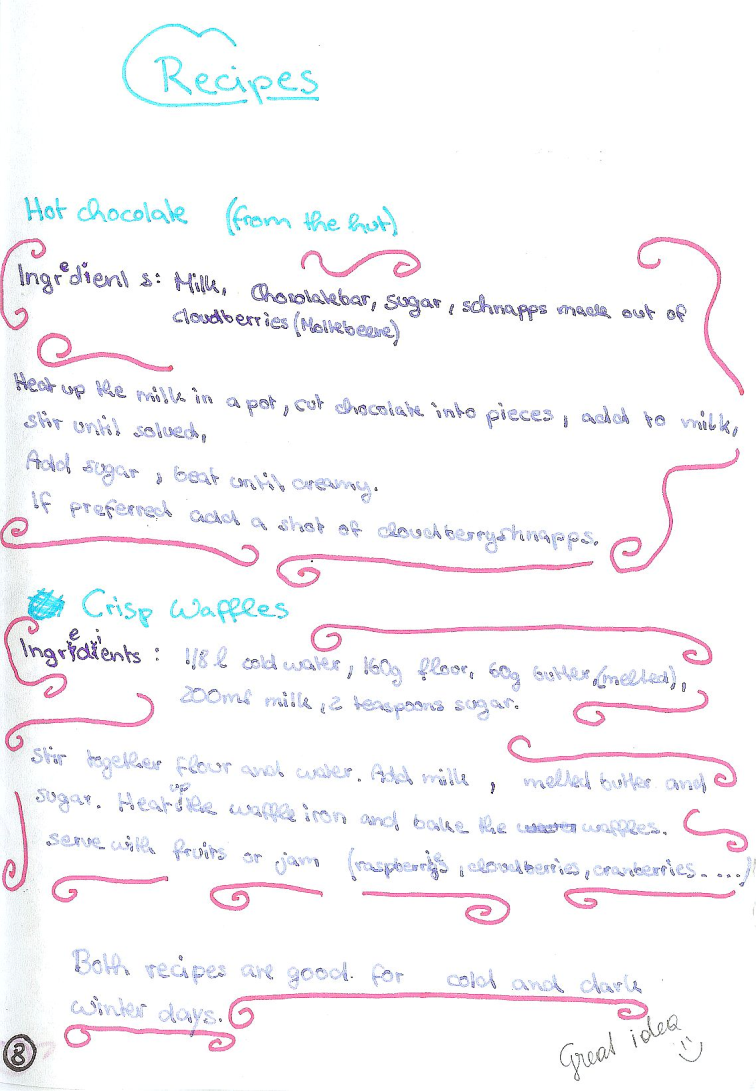 Recipes
Hot chocolate (from the hut)
Ingredients: Milk, Chocolatebar, sugar, schnapps made out of
cloudberries (Moltebeere)
Heat up the milk in a pot, cut chocolate into pieces, add to milk,
stir until solved,
Add sugar, beat until creamy.
If preferred add a shot of cloudberryshnapps.
Crisp Waffles
Ingredients: 1/8 l cold water, 160g floor, 60g butter, (melted),
200ml milk, 2 teaspoons sugar.
Stir together flour and water. Add milk, melted butter and
sugar. Heat up the waffle iron and bake the waffles.
serve with fruits or jam (raspberrys, cloudberries, cranberries.....)
Both recipes are good for cold and dark
winter days.
Great idea
8